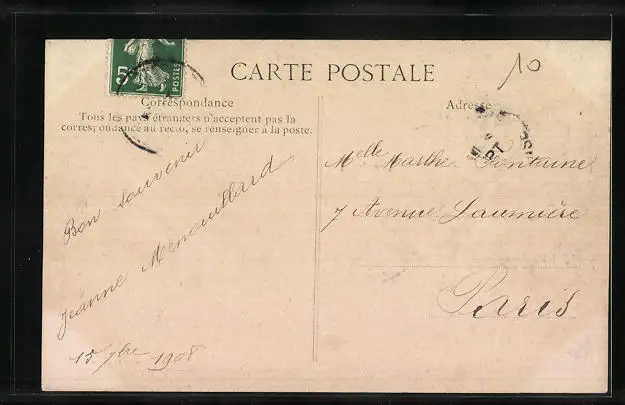 5
POSTES
CARTE POSTALE
10
Correspondance
Tous les pays étrangers n'acceptent pas la
correspondance au recto, se renseigner à la poste.
Bon souvenir
Jeanne Menouillard
15 7bre 1908
Adresse
Melle Marthe Fontaine
7 Avenue Laumière
Paris